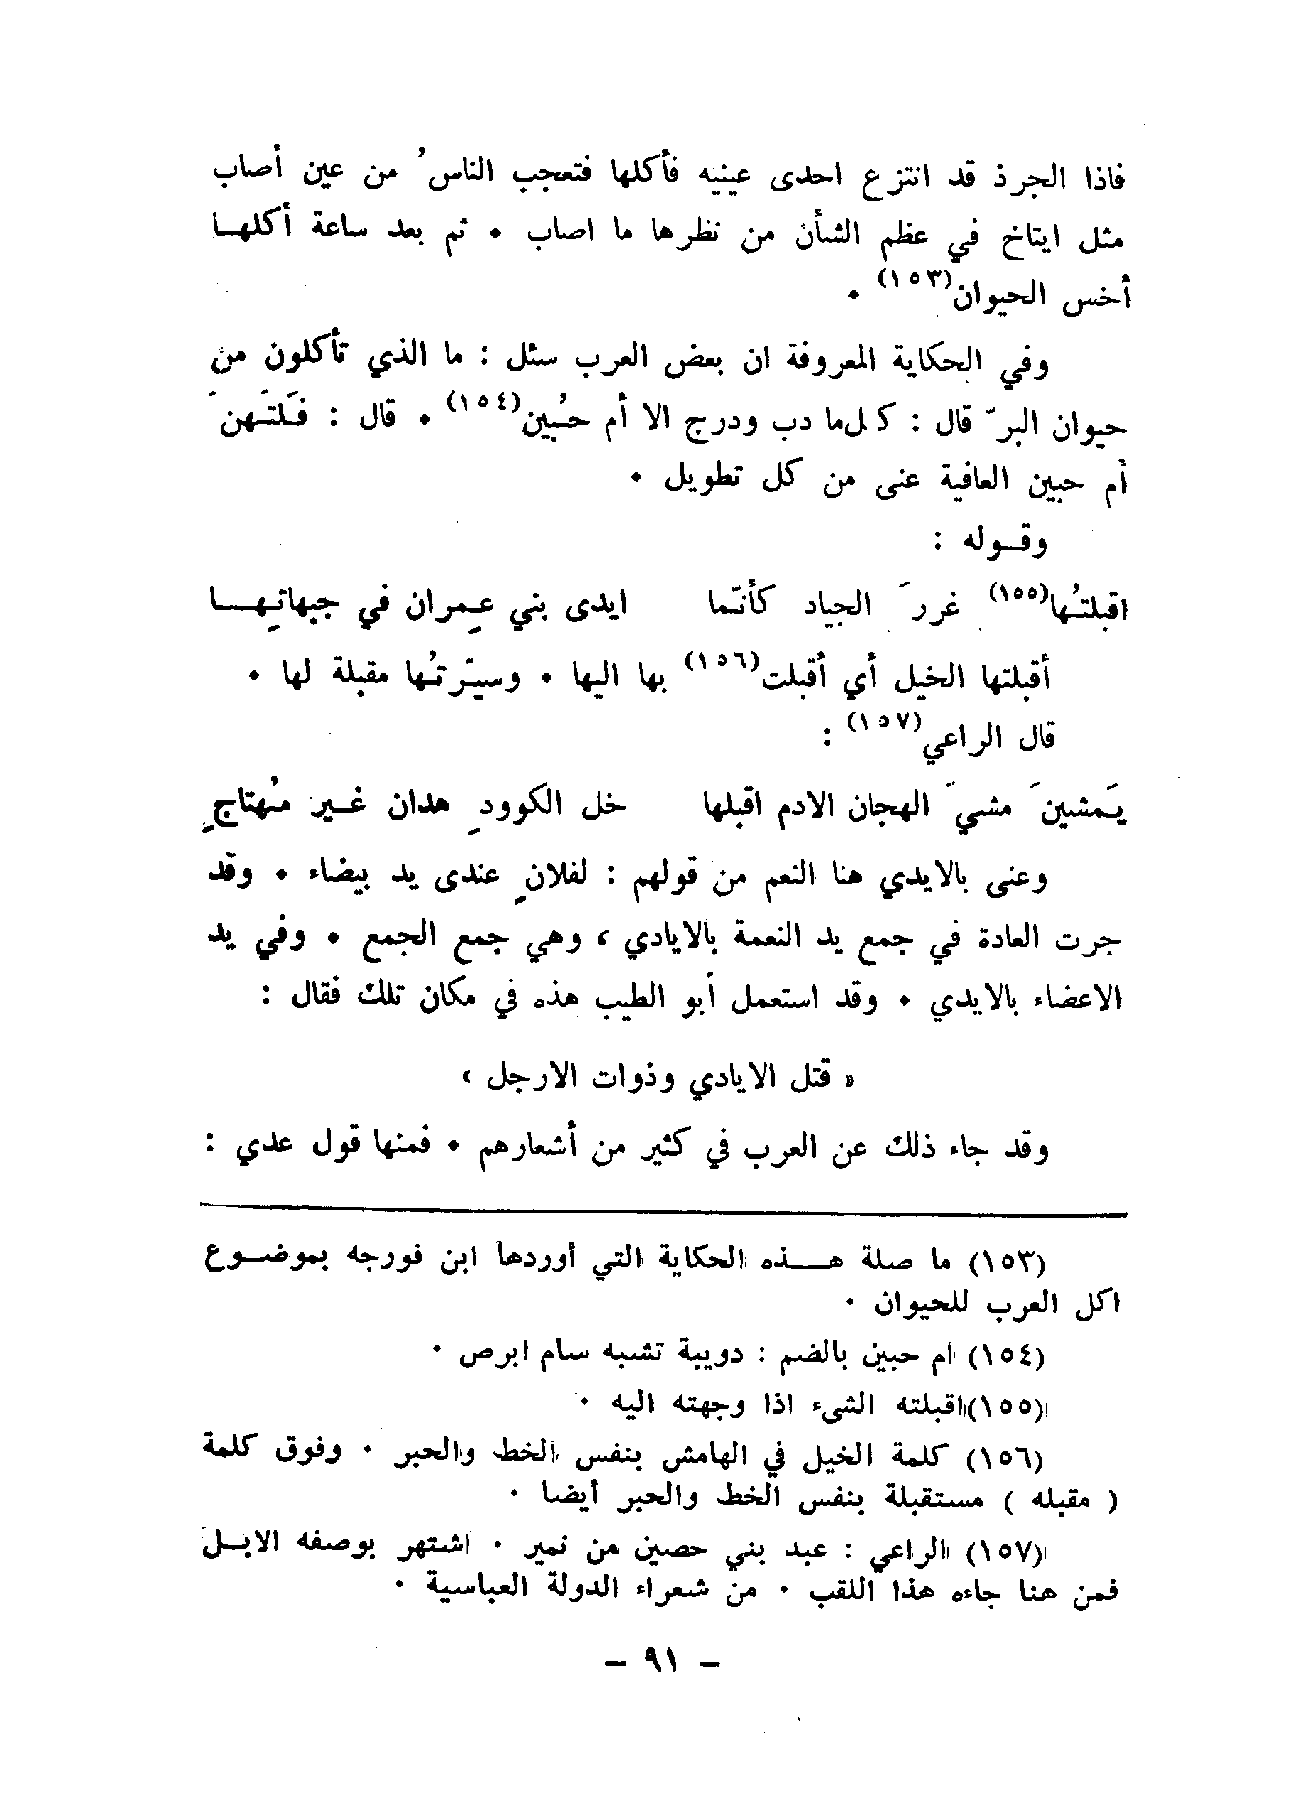 فاذا الجرذ قد انتزع احدى عينيه فأكلها فتعجب الناسُ من عين أصاب
مثل ايتاخ في عظم الشأن من نظرها ما اصاب • ثم بعد ساعة أكلهـا
أخس الحيوان(١٥٣) •
وفي الحكاية المعروفة ان بعض العرب سئل : ما الذي تأكلون من
حيوان البرّ قال : كل ما دب ودرج الا أم حُبين(١٥٤) • قال : فَلتَهنَ
أم حبين العافية عنى من كل تطويل •
وقـوله :
اقبلتُها(١٥٥) غررَ الجياد كأنّما ايدى بني عِمران في جبهاتِهـا
أقبلتها الخيل أي أقبلت(١٥٦) بها اليها • وسيّرتُها مقبلة لها •
قال الراعي(١٥٧) :
يَمشينَ مشيَ الهجان الادم اقبلها خل الكوودِ هدان غـير مُهتاجِ
وعنى بالايدي هنا النعم من قولهم : لفلانٍ عندى يد بيضاء • وقد
جرت العادة في جمع يد النعمة بالايادي ، وهي جمع الجمع • وفي يد
الاعضاء بالايدي • وقد استعمل أبو الطيب هذه في مكان تلك فقال :
« قتل الايادي وذوات الارجل »
وقد جاء ذلك عن العرب في كثير من أشعارهم • فمنها قول عدي :
(١٥٣) ما صلة هـذه الحكاية التي أوردها ابن فورجه بموضـوع
اكل العرب للحيوان •
(١٥٤) ام حبين بالضم : دويبة تشبه سام ابرص •
(١٥٥) اقبلته الشىء اذا وجهته اليه •
(١٥٦) كلمة الخيل في الهامش بنفس الخط والحبر • وفوق كلمة
( مقبله ) مستقبلة بنفس الخط والحبر أيضا •
(١٥٧) الراعي : عبد بني حصين من نمير • اشتهر بوصفه الابـل
فمن هنا جاءه هذا اللقب • من شعراء الدولة العباسية •
– ٩١ –